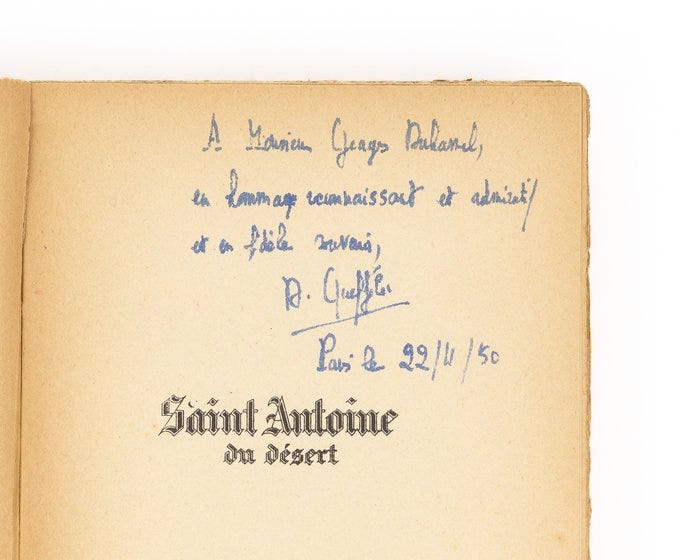 A Monsieur Georges Duhamel,
en hommage reconnaissant et admiratif
et en fidèle souvenir,
H. Queffélec
Paris le 22/11/50
Saint Antoine
du désert